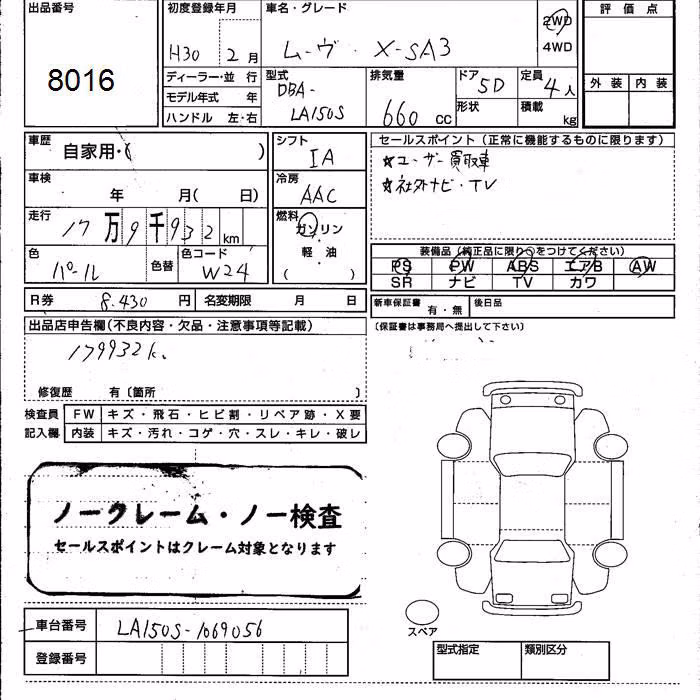 出品番号
8016
初度登録年月
H30 2月
車名・グレード
ムーヴ・X-SA3
2WD
4WD
評価点
外装 内装
ディーラー・並行
モデル年式 年
ハンドル 左・右
型式
DBA-
LA150S
排気量
660 CC
ドア
5D
形状
定員
4人
積載
kg
車歴
自家用・( )
車検
年 月( 日)
走行
17万9千932km
色
パール
色替
色コード
W24
シフト
IA
冷房
AAC
燃料
ガソリン
軽・油
( )
セールスポイント(正常に機能するものに限ります)
☆ユーザー買取車
☆社外ナビ・TV
装備品(純正品に限り○をつけてください)
PS PW ABS エアB AW
SR ナビ TV カワ
R券 8.430円 名変期限 月 日
新車保証書 有・無 後日品
(保証書は事務局へ提出して下さい)
出品店申告欄(不良内容・欠品・注意事項等記載)
179932k.
修復歴 有〔箇所 〕
検査員 FW キズ・飛石・ヒビ割・リペア跡・X要
記入欄 内装 キズ・汚れ・コゲ・穴・スレ・キレ・破レ
ノークレーム・ノー検査
セールスポイントはクレーム対象となります
車台番号 LA150S-1069056
登録番号
スペア
型式指定 類別区分